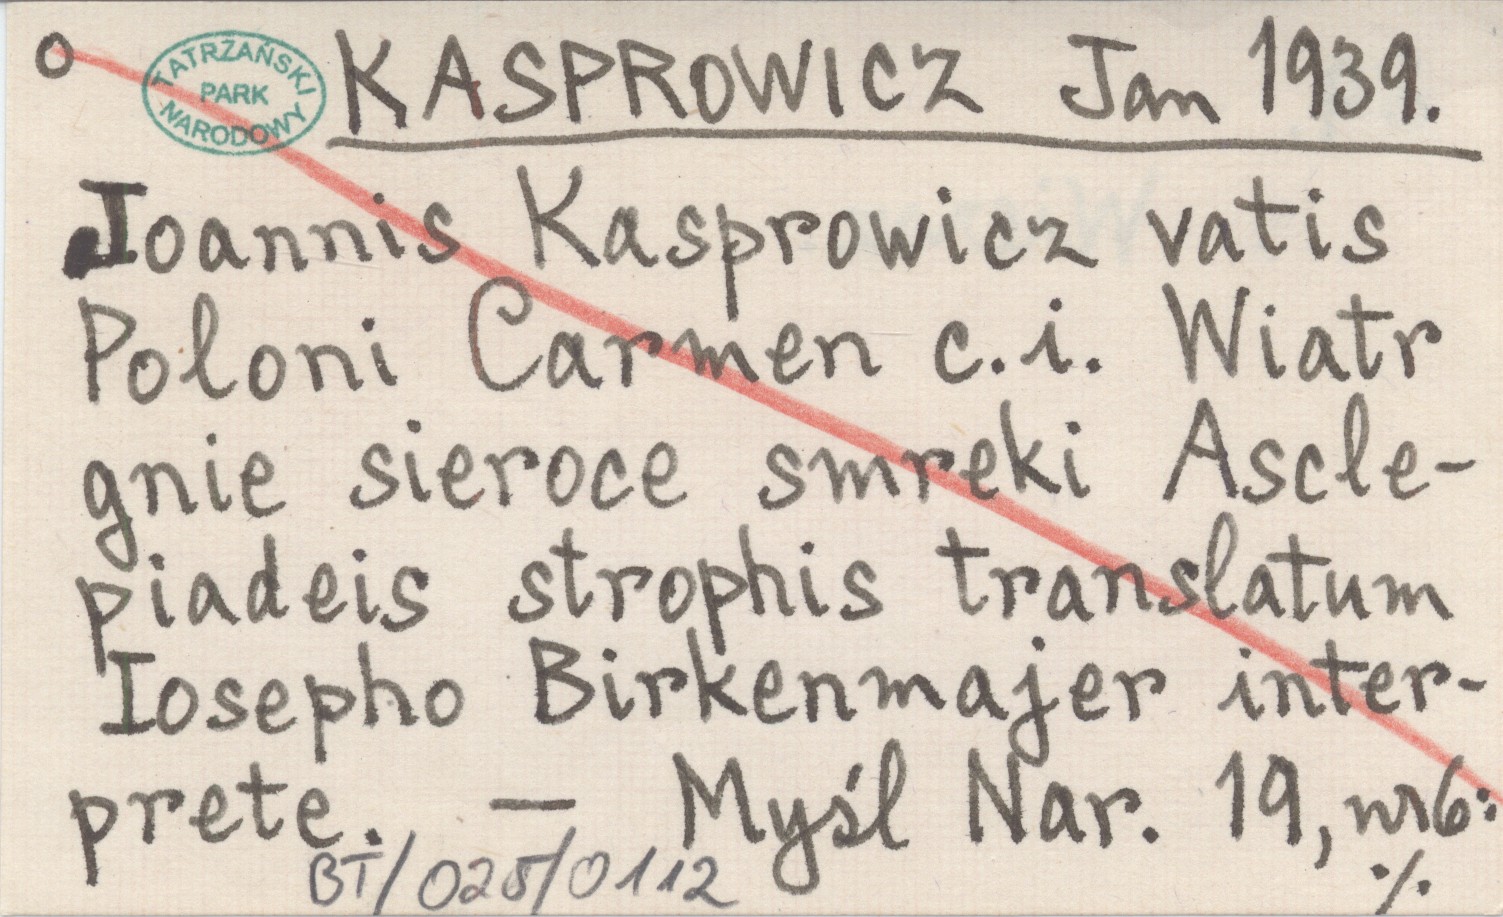 O TATRZAŃSKI PARK NARODOWY KASPROWICZ Jan 1939.
Joannis Kasprowicz vatis
Poloni Carmen c.i. Wiatr
gnie sieroce smreki Ascle-
piadeis strophis translatum
Iosepho Birkenmajer inter-
prete. — Myśl Nar. 19, nr 6:
BT/025/0112 ./.